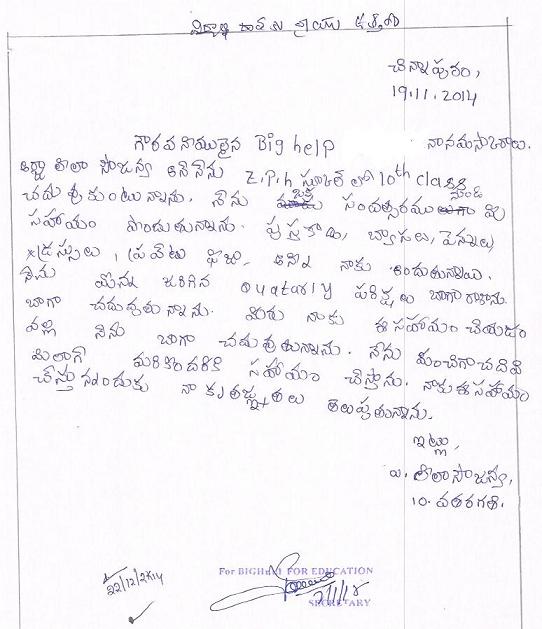 చిన్నాపురం,
19.11.2014
గౌరవనీయులైన Big help నా నమస్కారాలు.
లీలా సౌజన్య అనే నేను Z.P.h స్కూల్ లో 10th class
చదువుకుంటున్నాను. నేను సంవత్సరము నుండి మీ
సహాయం పొందుతున్నాను. పుస్తకాలు, బ్యాగులు, పెన్నులు,
డ్రస్సులు, ప్రవేటు ఫీజు, అన్ని నాకు అందుతున్నాయి.
నేను మొన్న జరిగిన quatarly పరీక్షలు బాగా రాశాను.
బాగా చదువుతున్నాను. మీరు నాకు ఈ సహాయం చేయడం
వల్ల నేను బాగా చదువుతున్నాను. నేను మంచిగా చదివి
మీలాగే మరికొందరికి సహాయం చేస్తాను. నాకు ఈ సహాయం
చేస్తున్నందుకు నా కృతజ్ఞతలు తెలుపుతున్నాను.
ఇట్లు,
లీలా సౌజన్య,
10. వ తరగతి.
22/12/2014
For BIGHELP FOR EDUCATION
SECRETARY